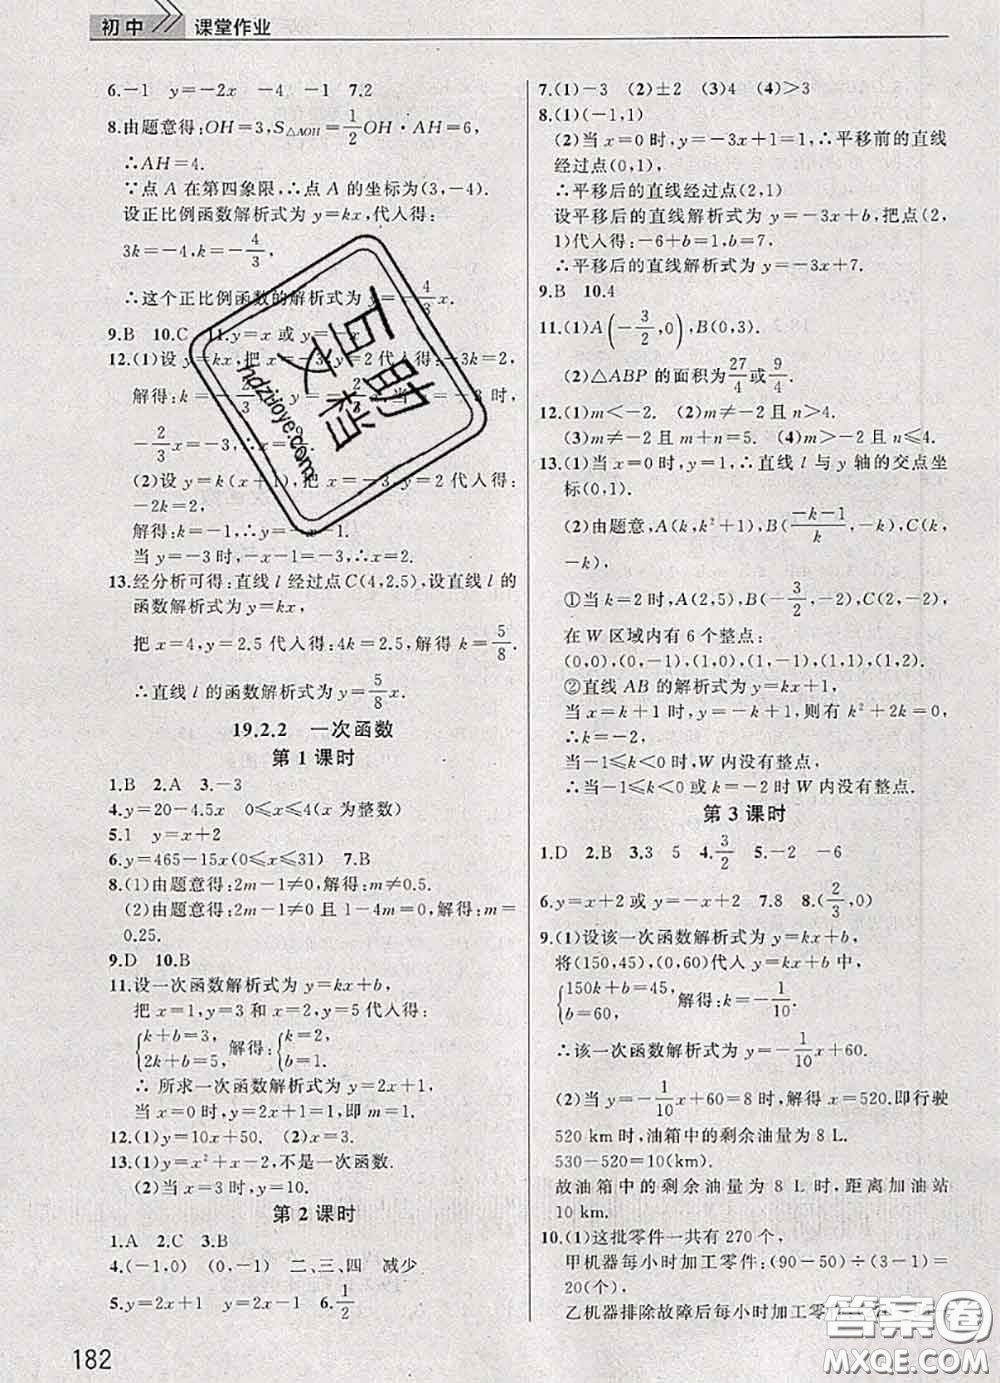 初中 课堂作业
6.-1 y=-2x -4 -1 7.2
8.由题意得:OH=3,S△AOH=1/2 OH·AH=6,
∴AH=4.
∵点 A 在第四象限,∴点 A 的坐标为(3,-4).
设正比例函数解析式为 y=kx,代人得:
3k=-4,k=-4/3,
∴这个正比例函数的解析式为 y=-4/3 x.
9.B 10.C 11.y=x 或 y=-x
12.(1)设 y=kx,把 x=-3,y=2代人得:-3k=2,
解得:k=-
-2/3 x=-3,
(2)设 y=k(x+1),把 x=-3,y=2代人得:
-2k=2,
解得:k=-1,∴y=-x-1.
当 y=-3 时,-x-1=-3,∴x=2.
13.经分析可得:直线 l 经过点 C(4,2.5),设直线 l 的
函数解析式为 y=kx,
把 x=4,y=2.5 代人得:4k=2.5,解得 k=5/8.
∴直线 l 的函数解析式为 y=5/8 x.
19.2.2 一次函数
第 1 课时
1.B 2.A 3.-3
4.y=20-4.5x 0≤x≤4(x 为整数)
5.1 y=x+2
6.y=465-15x(0≤x≤31) 7.B
8.(1)由题意得:2m-1≠0,解得:m≠0.5.
(2)由题意得:2m-1≠0 且 1-4m=0,解得:m=
0.25.
9.D 10.B
11.设一次函数解析式为 y=kx+b,
把 x=1,y=3 和 x=2,y=5 代人得:
{k+b=3, 2k+b=5, 解得:{k=2, b=1.
∴ 所求一次函数解析式为 y=2x+1,
当 x=0 时,y=2x+1=1,即 m=1.
12.(1)y=10x+50. (2)x=3.
13.(1)y=x²+x-2,不是一次函数.
(2)当 x=3 时,y=10.
第 2 课时
1.A 2.C 3.B
4.(-1,0) (-1,0) 二、三、四 减少
5.y=2x+1 y=2x-1 6.1/2
182
7.(1)-3 (2)±2 (3)4 (4)>3
8.(1)(-1,1)
(2)当 x=0 时,y=-3x+1=1,∴平移前的直线
经过点(0,1),
∴平移后的直线经过点(2,1)
设平移后的直线解析式为 y=-3x+b,把点(2,
1)代人得:-6+b=1,b=7,
∴平移后的直线解析式为 y=-3x+7.
9.B 10.4
11.(1)A(-3/2,0),B(0,3).
(2)△ABP 的面积为27/4或9/4.
12.(1)m<-2. (2)m≠-2 且 n>4.
(3)m≠-2 且 m+n=5. (4)m>-2 且 n≤4.
13.(1)当 x=0 时,y=1,∴直线 l 与 y 轴的交点坐
标(0,1).
(2)由题意,A(k,k²+1),B((-k-1)/k,-k),C(k,
-k),
①当 k=2 时,A(2,5),B(-3/2,-2),C(2,-2),
在 W 区域内有 6 个整点:
(0,0),(0,-1),(1,0),(1,-1),(1,1),(1,2).
②直线 AB 的解析式为 y=kx+1,
当 x=k+1 时,y=-k+1,则有 k²+2k=0,
∴k=-2,
当-1≤k<0 时,W 内没有整点,
∴当-1≤k<0 或 k=-2 时 W 内没有整点.
第 3 课时
1.D 2.B 3.3 5 4.3/2 5.-2 -6
6.y=x+2 或 y=-x+2 7.8 8.(2/3,0)
9.(1)设该一次函数解析式为 y=kx+b,
将(150,45),(0,60)代人 y=kx+b 中,
{150k+b=45, b=60, 解得:k=-1/10.
∴该一次函数解析式为 y=-1/10 x+60.
(2)当 y=-1/10 x+60=8 时,解得 x=520.即行驶
520 km 时,油箱中的剩余油量为 8 L.
530-520=10(km).
故油箱中的剩余油量为 8 L 时,距离加油站
10 km.
10.(1)这批零件一共有 270 个,
甲机器每小时加工零件:(90-50)÷(3-1)=
20(个),
乙机器排除故障后每小时加工零
百助文档
hdzuoye.com
答案圈
MXQE.COM